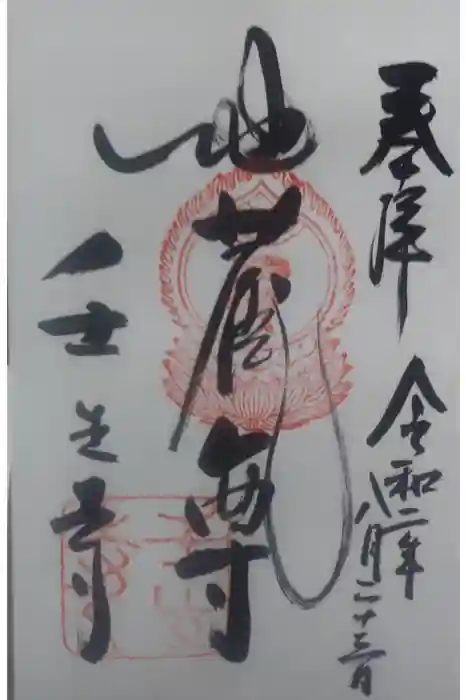 奉拝 令和二年
八月二十三日
地蔵尊
壬生寺